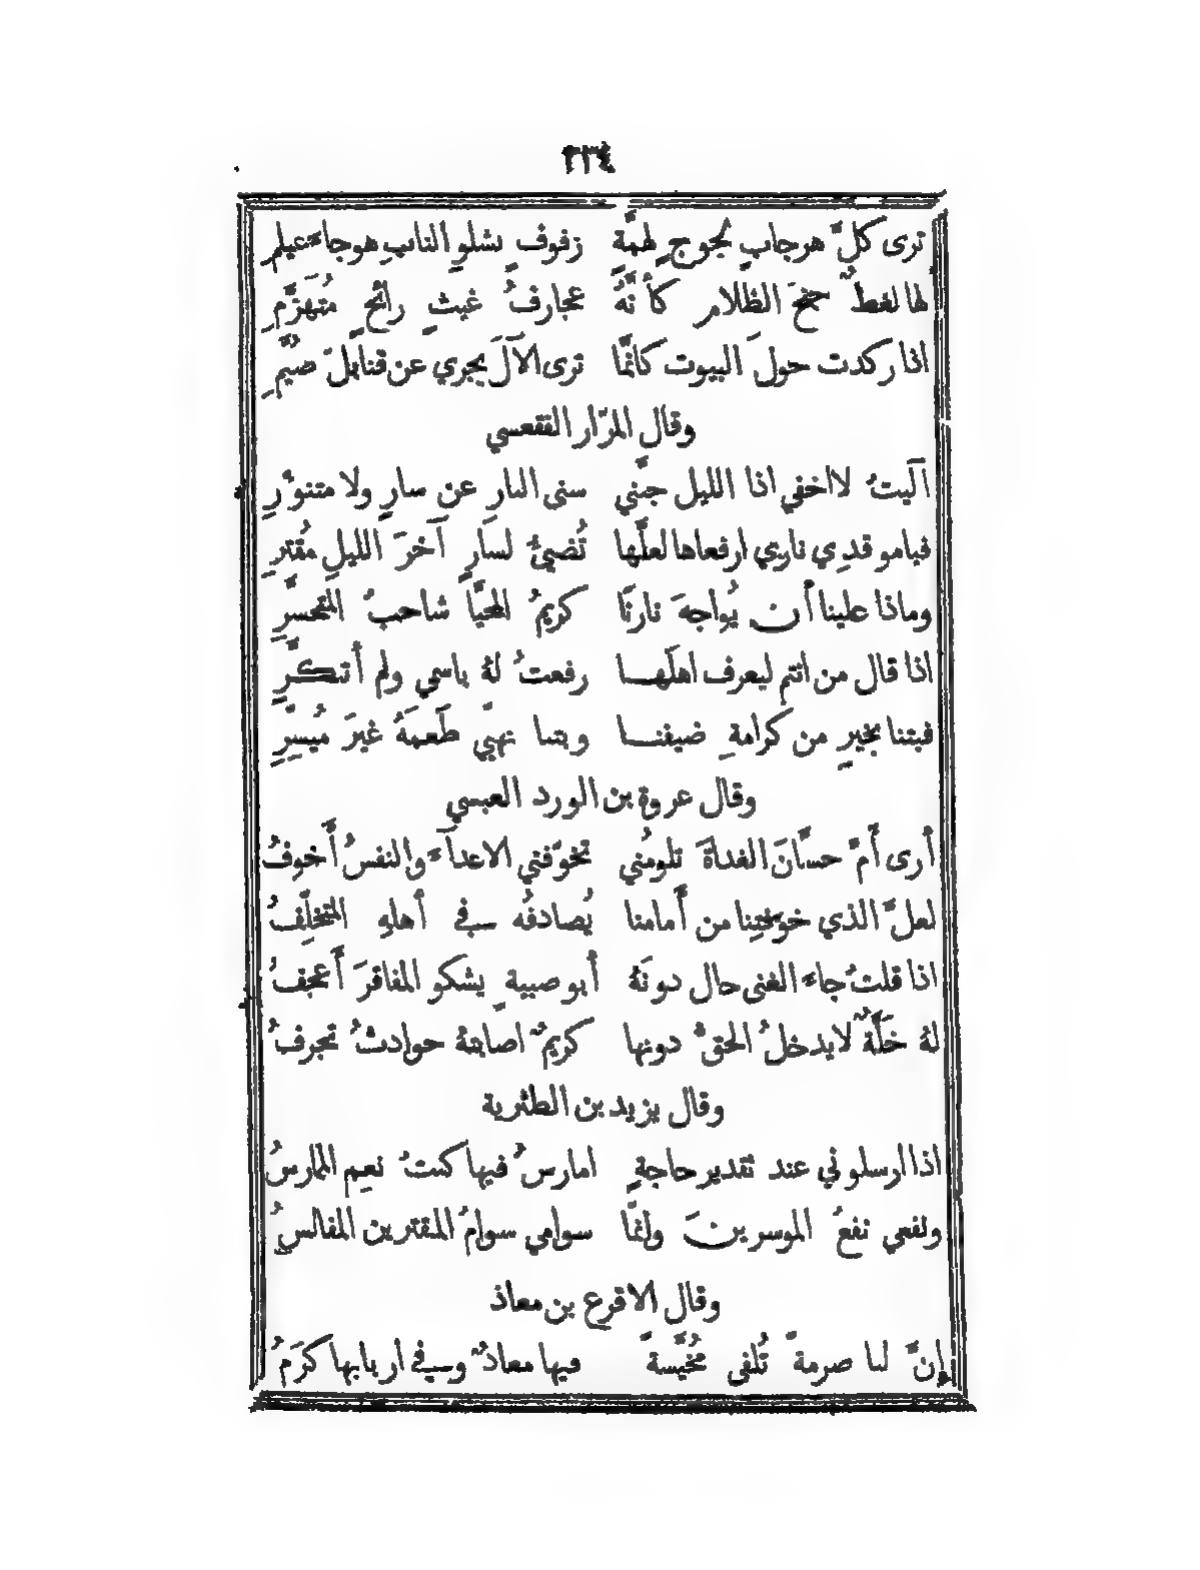 ٢٣٤
ترى كلَّ هرجابٍ لجوجٍ لهمَّةٍ زفوفٍ بشلوِ النابِ هوجاءَ عيلمِ
لها لغطٌ جنحَ الظلام كأَنَّهُ عجارفُ غيثٍ رائحٍ مُتهزَّمِ
اذا ركدت حولَ البيوت كانَّما ترى الآلَ يجري عن قنابلَ صُيَّمِ
وقال المرّار الفقعسي
آليتُ لا اخفي اذا الليل جنَّني سنى النارِ عن سارٍ ولا متنوّرِ
فيا موقدِي ناري ارفعاها لعلَّها تُضيئُ لسارٍ آخرَ الليلِ مُقترِ
وماذا علينا أَن يُواجهَ نارنَا كريمُ المحيَّا شاحبُ المتحسَّرِ
اذا قال من انتم ليعرف اهلَها رفعتُ لهُ باسمي ولم أَتنكَّرِ
فبتنا بخيرٍ من كرامةِ ضيفنا وبتنا نهيّي طَعمَهُ غيرَ مُيسّرِ
وقال عروة بن الورد العبسي
أَرى أُمَّ حسَّانَ الغداةَ تلومُني تخوّفني الاعداءَ والنفسُ أَخوفُ
لعلَّ الذي خوّفتِنا من أَمامنا يُصادفُه في أَهلهِ المتخلِّفُ
اذا قلتُ جاءَ الغنى حال دونَهُ أَبو صبيةٍ يشكو المفاقرَ أَعجفُ
لهُ خَلَّةٌ لا يدخلُ الحقُّ دونها كريمٌ اصابتهُ حوادثُ تجرفُ
وقال يزيد بن الطثرية
اذا ارسلوني عند تقدير حاجةٍ امارسُ فيها كنتُ نعِم الممارسُ
ونفعي نفعُ الموسرينَ وانَّما سوامي سوامُ المقترين المفالسِ
وقال الاقرع بن معاذ
إِنَّ لنا صرمةً تُلفى مُخيَّسةً فيها معادٌ وفي اربابها كرَمُ